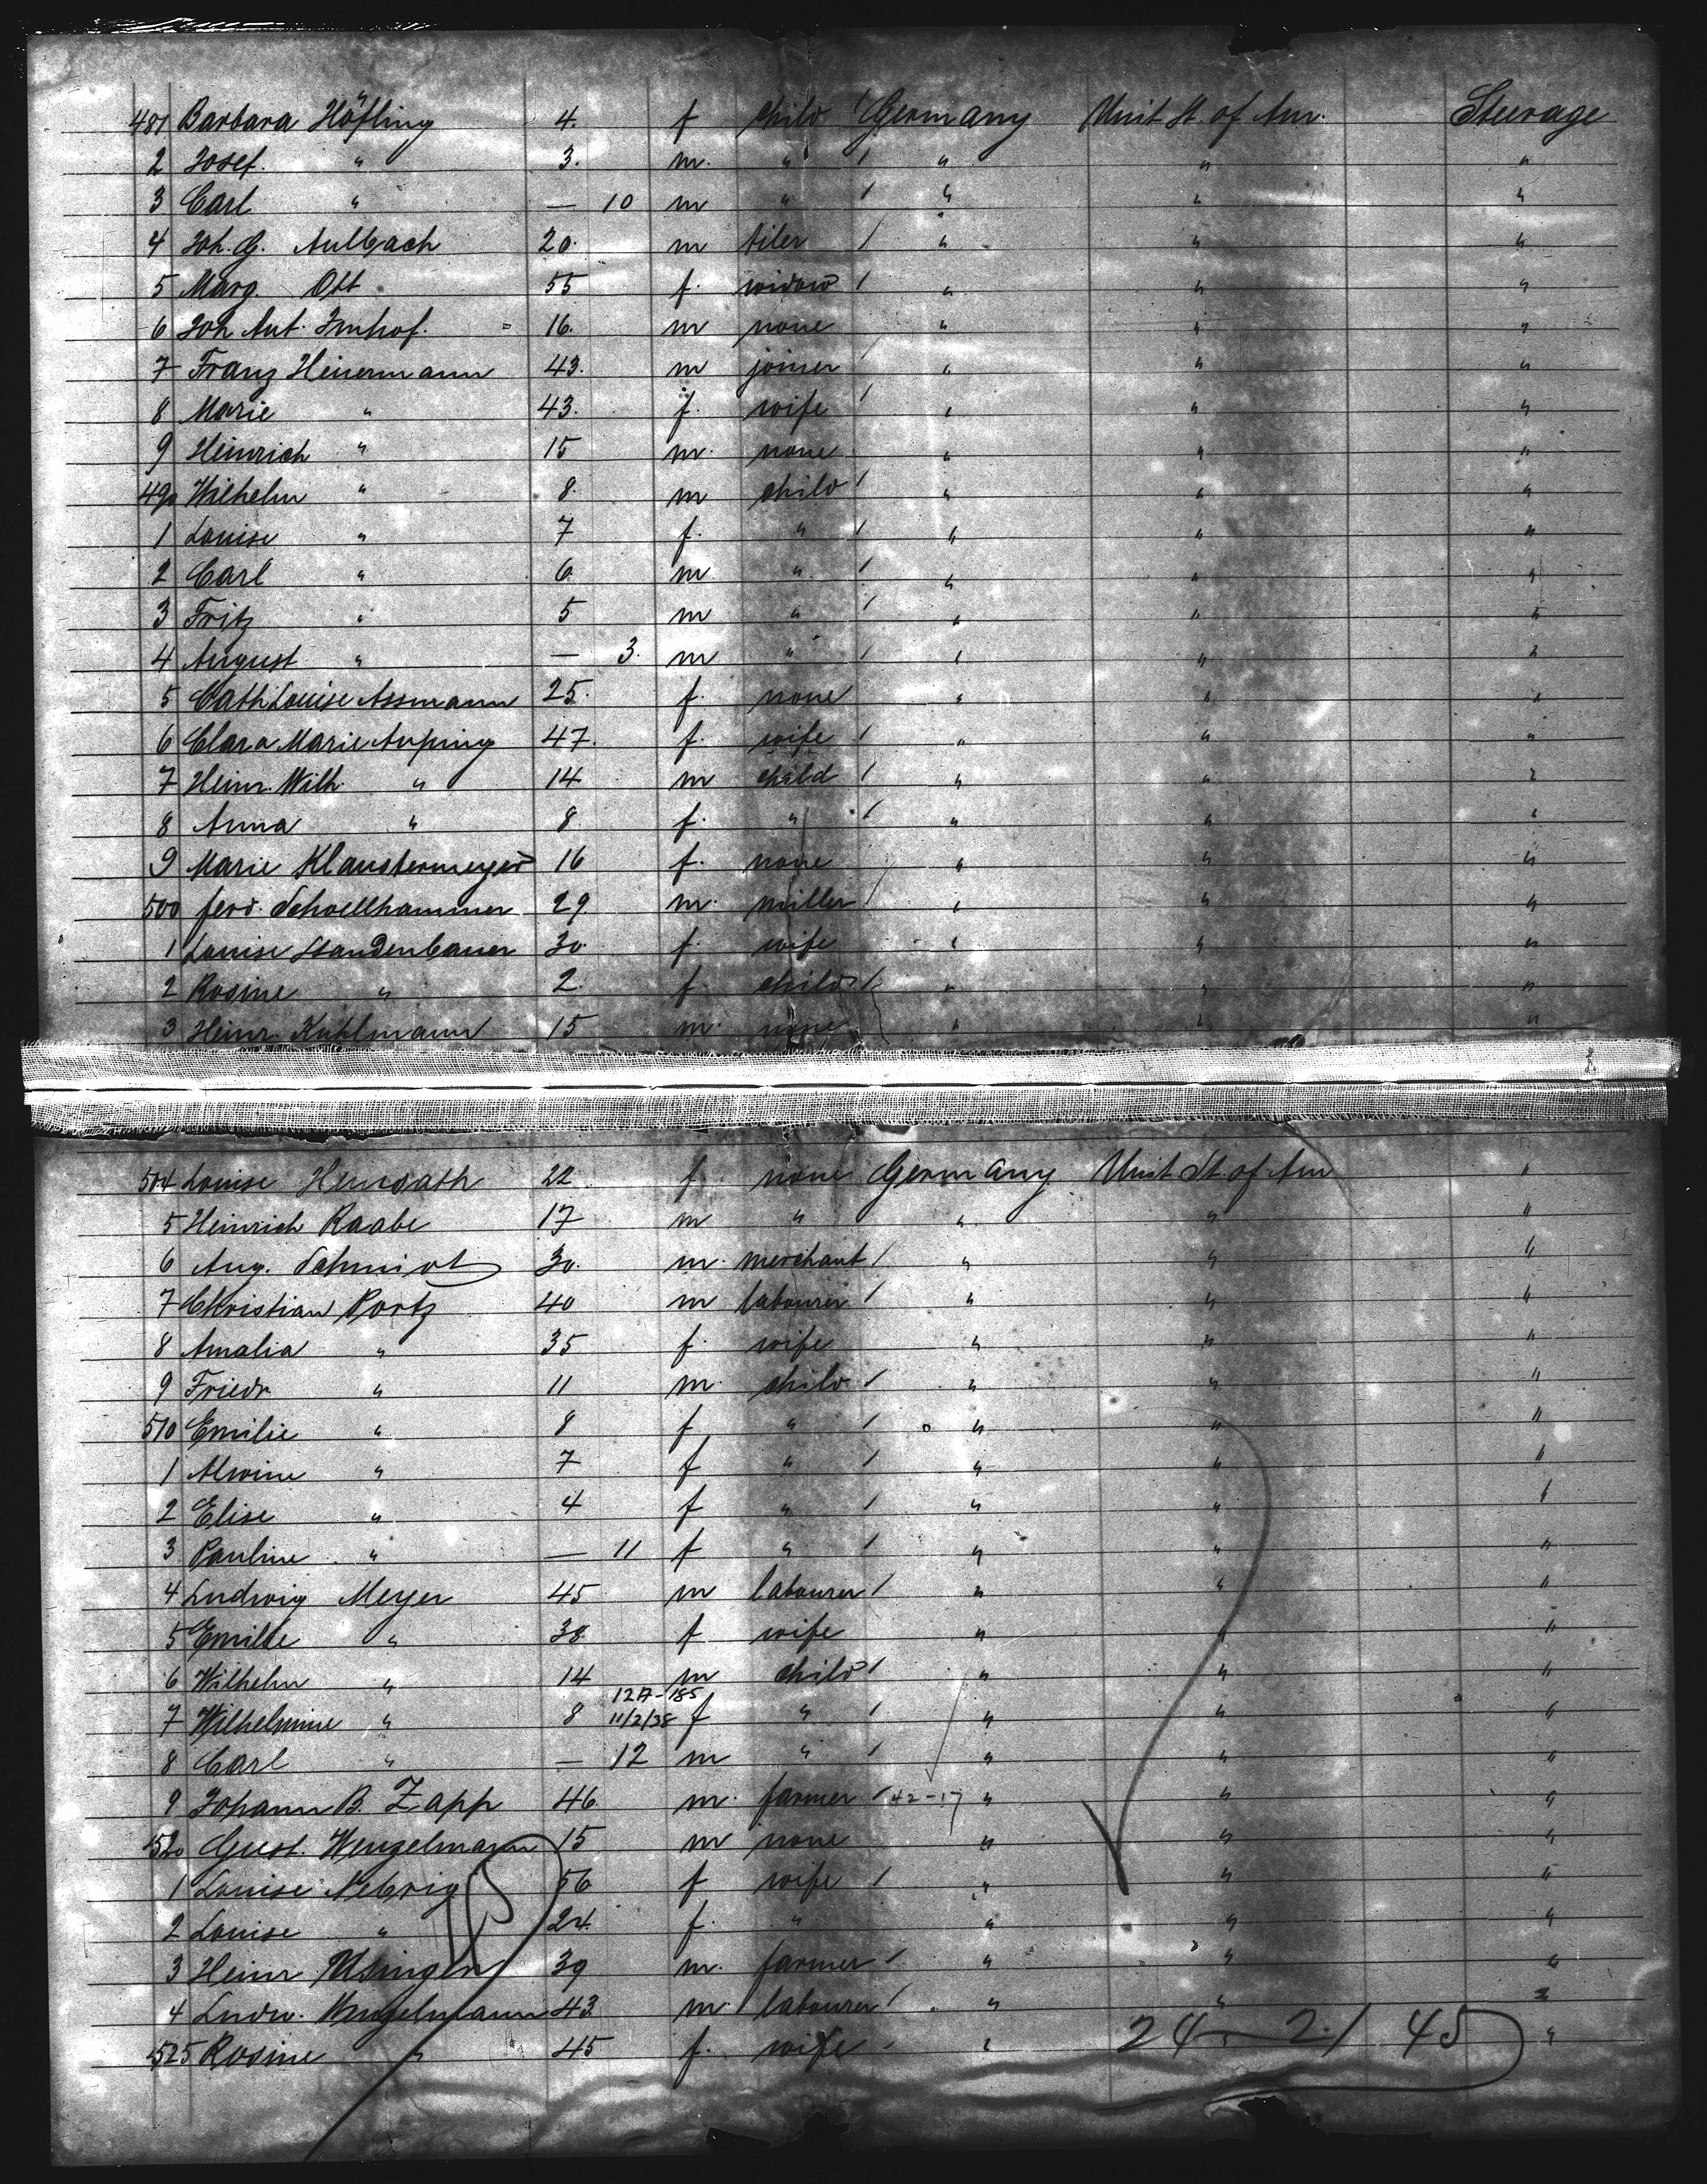 481 Barbara Höfling 4. f child Germany Unit St. of Am. Steerage
2 Josef. " 3. m. " / " " "
3 Carl " — 10 m " / " " "
4 Joh. G. Aulbach 20. m tiler / " " "
5 Marg. Ott 55 f. widow / " " "
6 Joh Ant. Imhof. 16. m none " " "
7 Franz Heinermann 43. m joiner / " " "
8 Marie " 43. f. wife / " " "
9 Heinrich " 15 m. none " " "
490 Wilhelm " 8. m child / " " "
1 Louise " 7 f. " / " " "
2 Carl " 6. m " / " " "
3 Fritz " 5 m " / " " "
4 August " — 3. m " / " " "
5 Cath Louise Assmann 25. f. none " " "
6 Clara Marie Auping 47. f. wife / " " "
7 Heinr. Wilh. " 14 m child / " " "
8 Anna " 8. f. " / " " "
9 Marie Klaustermeyer 16 f. none / " " "
500 ferd. Schoellhammer 29 m. miller / " " "
1 Louise 30. f. wife " " "
2 Rosine " 2. f. child / " " "
3 Heinr. Kuhlmann 15 m. none " " "
504 Louise 22 f. none Germany Unit St. of Am "
5 Heinrich Raabe 17 m " " " "
6 Aug. Schmidt 30. m. merchant / " " "
7 Christian Portz 40 m labourer / " " "
8 Amalia " 35 f. wife " " "
9 Friedr. " 11 m. child / " " "
510 Emilie " 8 f " / " " "
1 Alwine " 7 f " / " " "
2 Elise " 4 f " / " " "
3 Pauline " — 11 f " / " " "
4 Ludwig Meyer 45 m labourer / " " "
5 Emilie " 38. f wife " " "
6 Wilhelm " 14 m child / " " "
12A-185
7 Wilhelmine " 8 11/2/38 f " / " " "
8 Carl " — 12 m " / " " "
9 Johann B. Zapp 46. m. farmer / 42-17 " " "
520 Gust. Wengelmann 15 m none " " "
1 Louise Nebrig 56 f wife / " " "
2 Louise " 24. f. " " " "
3 Heinr Usinger 39 m. farmer / " " "
4 Ludw. Wengelmann 43. m. labourer / " " "
525 Rosine " 45 f. wife " 24 21 45 "